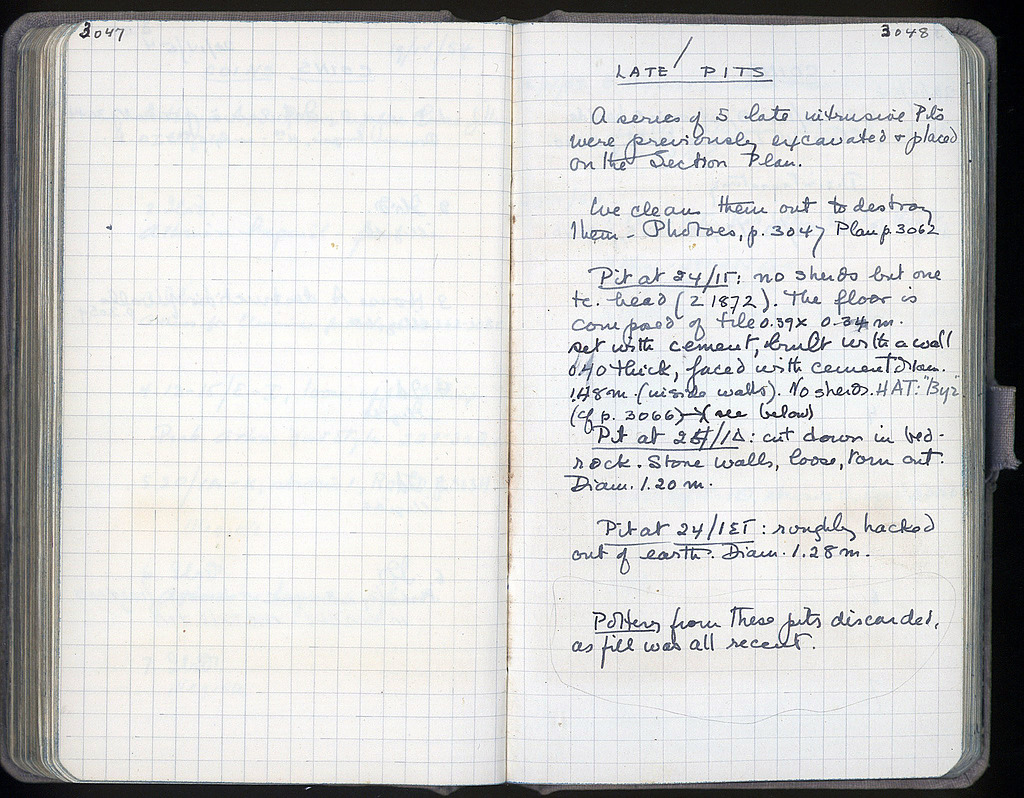 3047
3048
LATE PITS
A series of 5 late intrusive Pits
were previously excavated + placed
on the Section Plan.
We clean them out to destroy
them - Photoes, p. 3047 Plan p. 3062
Pit at 24/ΙΓ: no sherds but one
tc. head (Σ 1872). The floor is
composed of tile 0.39 x 0.34 m.
set with cement, built with a wall
0.40 thick, faced with cement Diam.
1.48 m. (inside walls). No sherds. HAT: "Byz"
(cf p. 3066) (see below)
Pit at /ΙΔ: cut down in bed-
rock. Stone walls, loose, torn out.
Diam. 1.20 m.
Pit at 24/ : roughly hacked
out of earth. Diam. 1.28 m.
Pottery from these pits discarded,
as fill was all recent.